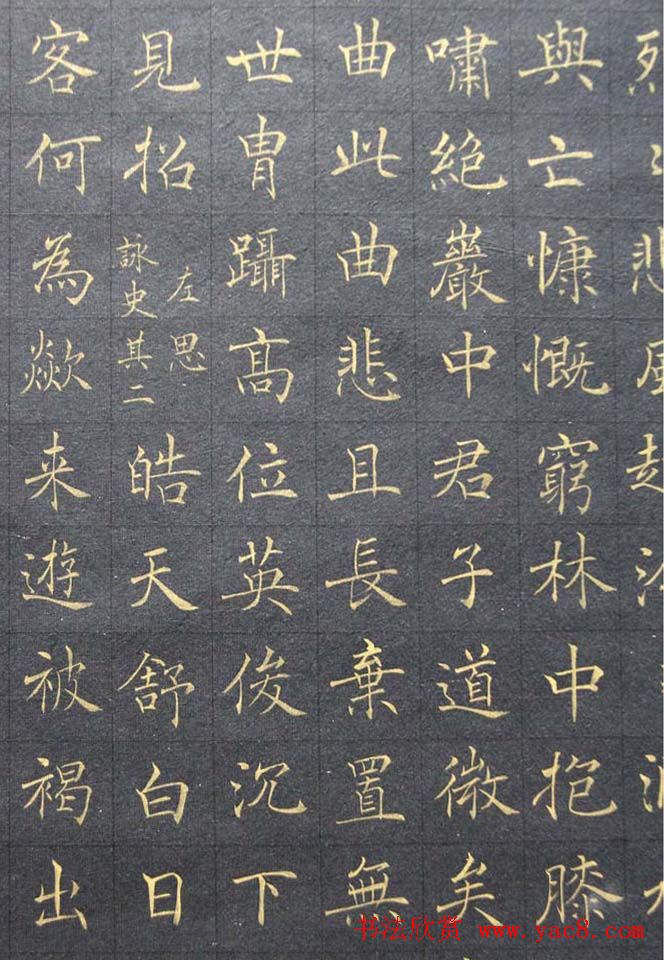 與亡慷慨窮林中抱膝
嘯絕巖中君子道微矣
曲此曲悲且長棄置無
世胄躡髙位英俊沉下
見招
左思
詠史其二
皓天舒白日
客何為歘来遊被褐出
书法欣赏 www.yac8.com